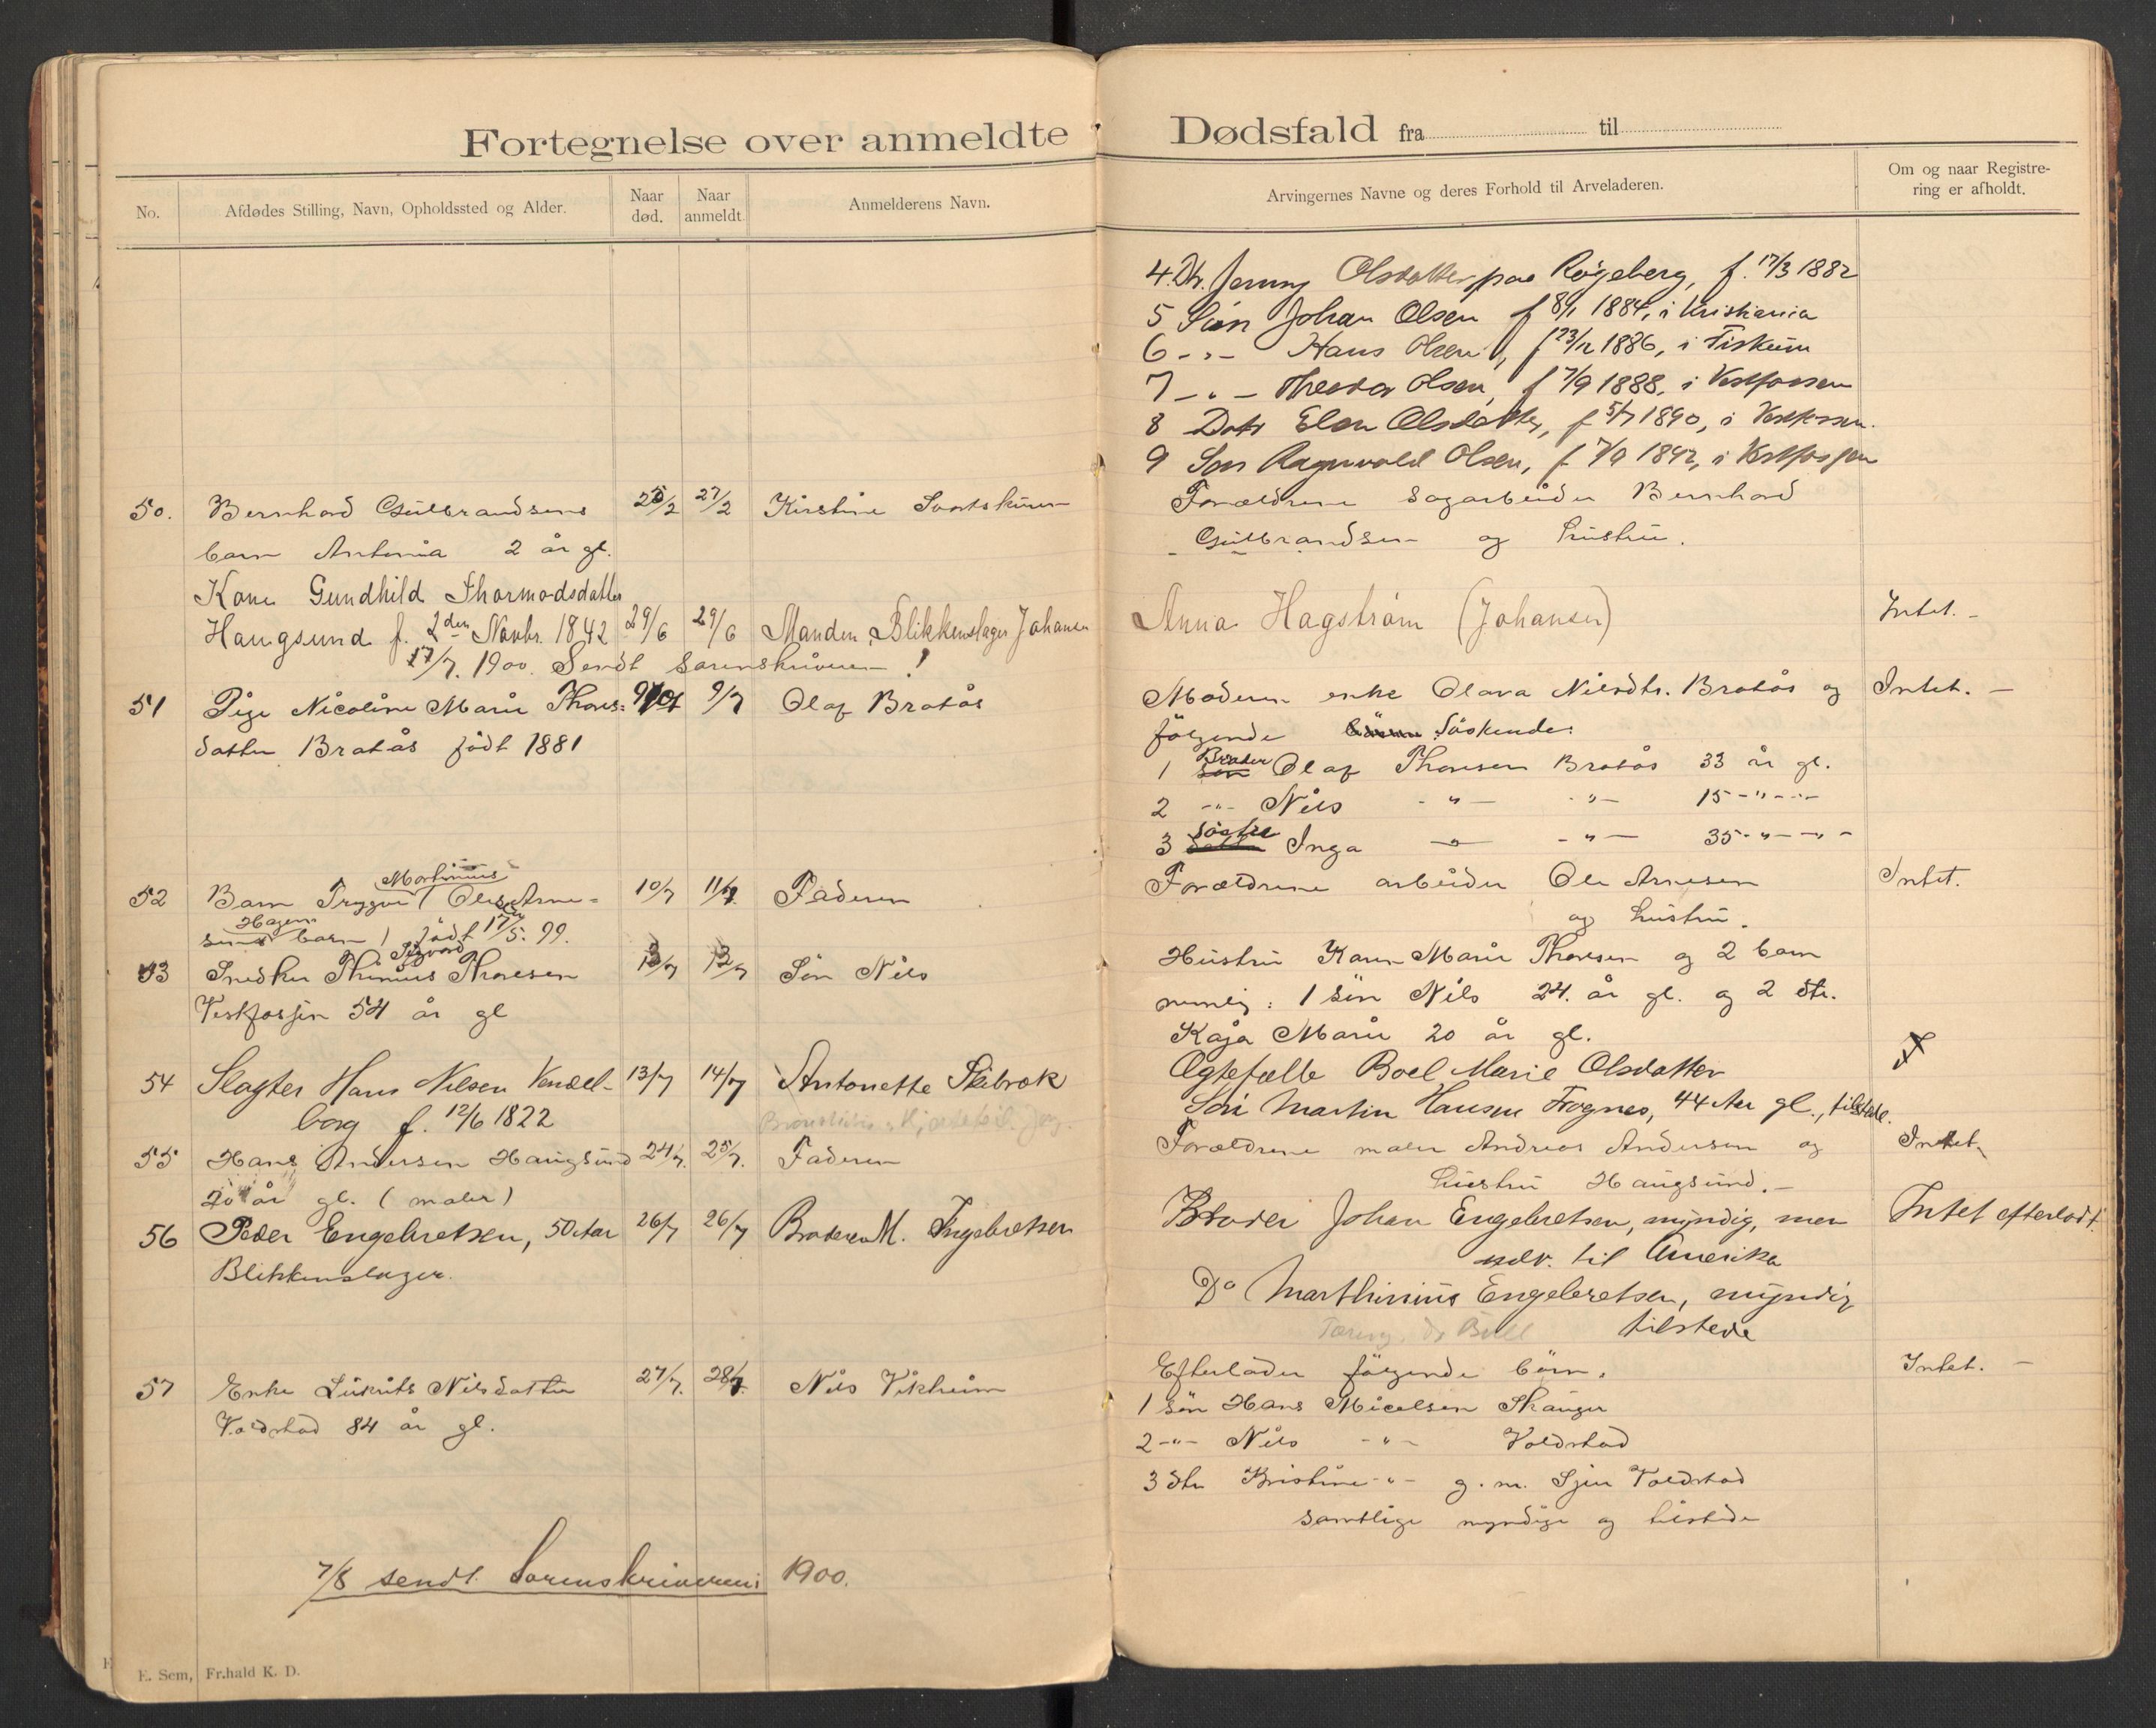 Fortegnelse over anmeldte
No.
Afdødes Stilling, Navn, Opholdssted og Alder.
Naar død.
Naar anmeldt.
Anmelderens Navn.
50. Bernhard Gulbrandsens 25/2 27/2 Kirstine
barn Antonia 2 år gl.
Kone Gundhild Thormodsdatter
Haugsund f. 2den Novbr. 1842 29/6 29/6 Manden, Blikkenslager Johansen
17/7. 1900. Sendt Sorenskriveren!
51 Pige Nicoline Marie Thores= 9/7 Olaf Bratås
datter Bratås født 1881
Martinius
52 Barn Trygve Ole Arne= 10/7 11/7 Faderen
Hagen
sens barn født 17/5. 99.
Sigvard
53 Snedker Thinius Thoresen 13/7 13/7 Søn Nils
Vestfossen 54 år gl
54 Slagter Hans Nilsen Vendel- 13/7 14/7 Antonette Skibrek
borg f. 12/6 1822
55 Hans Andersen Haugsund 24/7. 25/7. Faderen
20 år gl. (maler)
56 Peder Engebretsen, 50 Aar 26/7 26/7 Broderen M. Ingebretsen
Blikkenslager.
57 Enke Nilsdatter 27/7. 28/7. Nils Vikheim
Voldstad 84 år gl.
7/8 sendt Sorenskriveren 1900.
E. Sem, Fr.hald K. D.
Dødsfald fra til
Arvingernes Navne og deres Forhold til Arveladeren.
Om og naar Registre-
ring er afholdt.
4. Dtr. Jenny Olsdatter paa Røgeberg, f. 17/3 1882
5 Søn Johan Olsen f 8/1 1884, i Kristiania
6 -"- Hans Olsen, f 23/12 1886, i Fiskum
7 -"- Theodor Olsen, f 7/9 1888, i Vestfossen
8 Datr Elen Olsdatter, f 5/7 1890, i Vestfossen.
9 Søn Ragnvald Olsen, f 7/9 1892, i Vestfossen
Forældrene Sagarbeider Bernhard
Gulbrandsen og hustru.
Anna Hagstrøm (Johansen) Intet. -
Moderen enke Olava Nilsdtr. Bratås og Intet. -
følgende børn Søskende:
1 Søn Broder Olaf Thoresen Bratås 33 år gl.
2 -"- Nils -"- -"- 15 -"- -"-
3 Søster Inga -"- -"- 35 -"- -"-
Forældrene arbeider Ole Arnesen Intet.
og hustru.
Hustru Karen Marie Thoresen og 2 barn
nemlig: 1 Søn Nils 24. år gl. og 2 Dtr.
Kaja Marie 20 år gl.
Ægtefælle Boel Marie Olsdatter
Søn Martin Hansen Frognes, 44 Aar gl., tilstede.
Forældrene maler Andreas Andersen og Intet.
hustru Haugsund. -
Broder Johan Engebretsen, myndig, men Intet efterladt.
udv. til Amerika
Do Marthinius Engebretsen, myndig
tilstede
Tæring, dr Bull
Efterlader følgende børn. Intet. -
1 Søn Hans Micelsen Skanger
2 -"- Nils -"- Voldstad
3 Dtr Kristine -"- g. m. Voldstad
samtlige myndige og tilstede